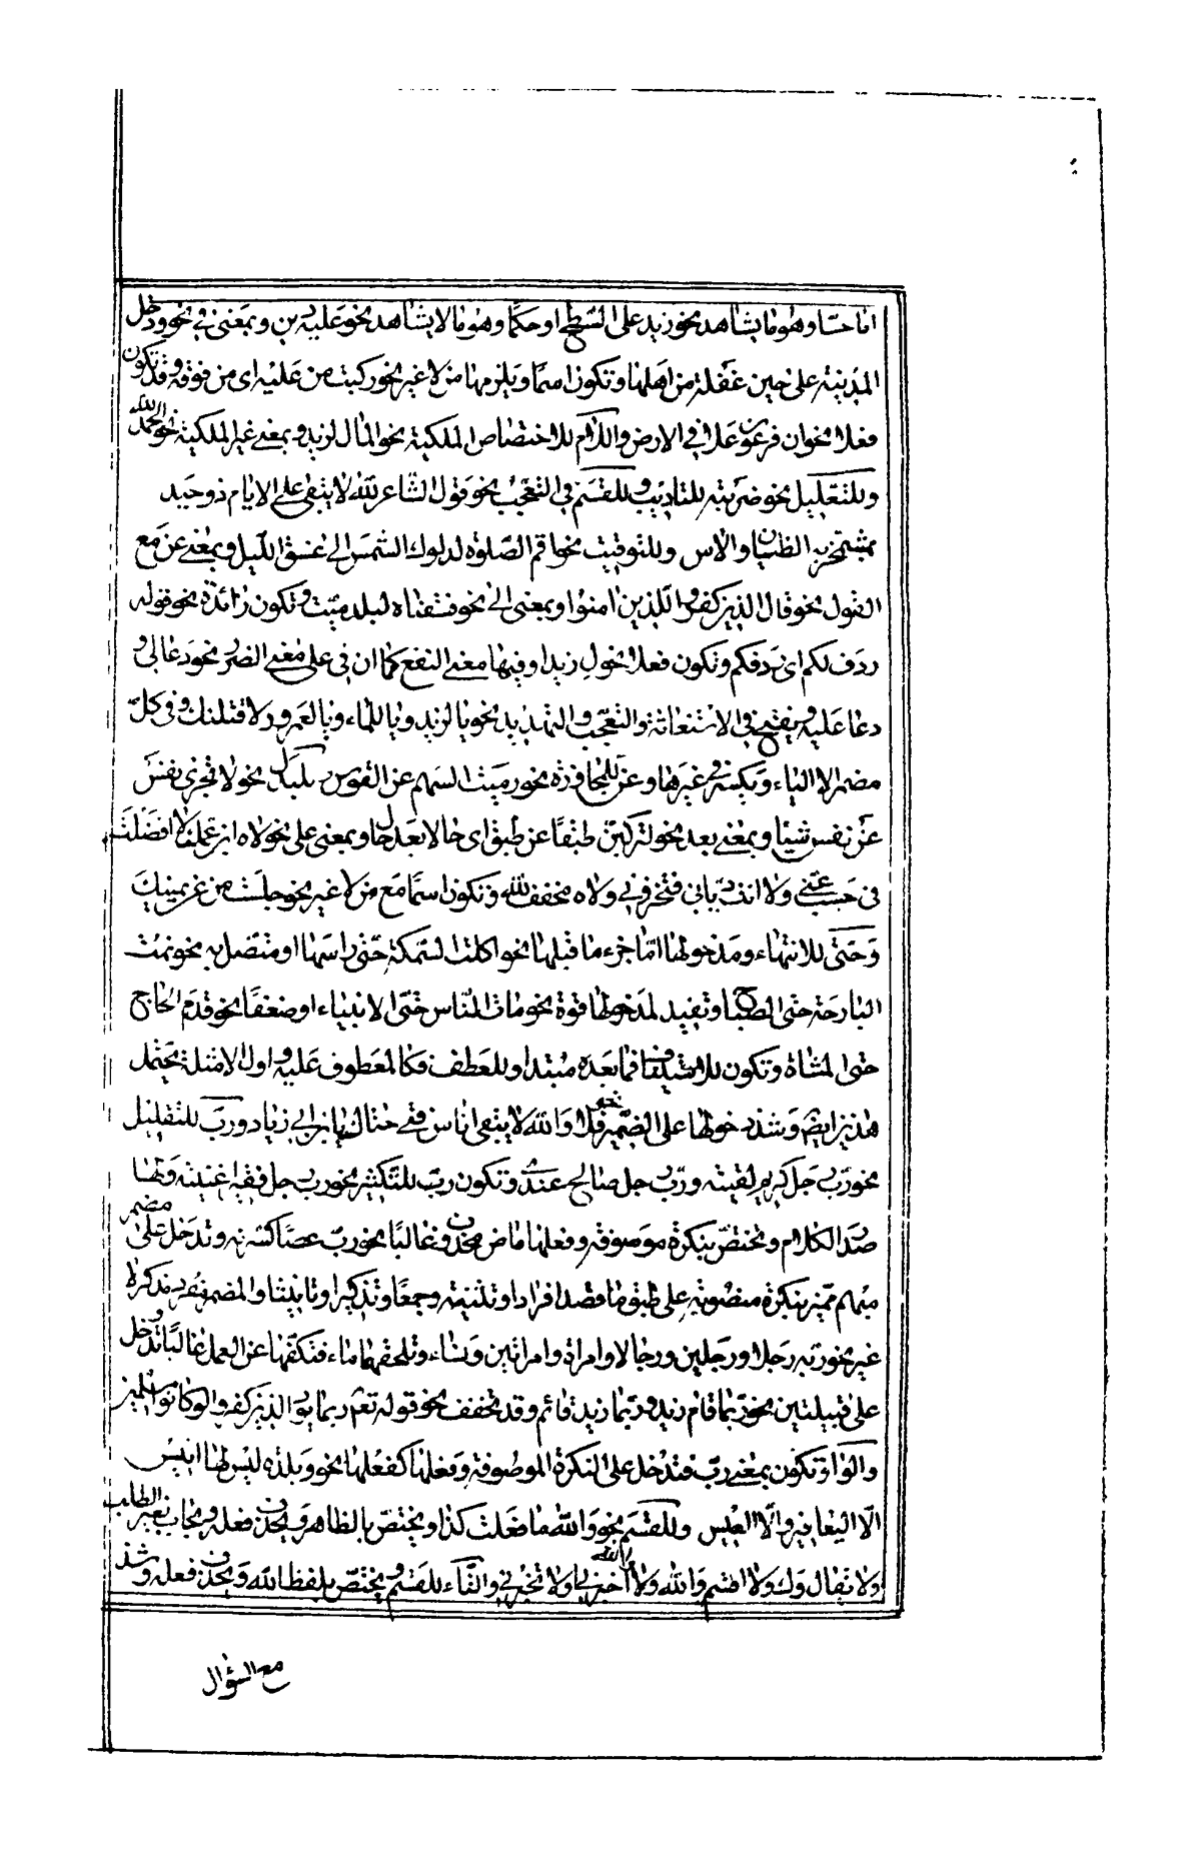 اما حسّا وهو ما يشاهد نحو زيد على السّطح او حكمًا وهو ما لا يشاهد نحو عليه دين وبمعنى في نحو ودخل
المدينة على حين غفلة من اهلها وتكون اسمًا ويلزمها من لا غير نحو ركبت من عليه اى من فوقه وقد تكون
فعلا نحو ان فرعون علا في الارض واللّام للاختصاص الملكية نحو المال لزيد وبمعنى غير الملكية نحو الحمد لله
وللتعليل نحو ضربته للتاديب وللقسم في التعجّب نحو قول الشاعر لله لا يبقى على الايام ذو حيد
بمشمخرّ به الظّيّان والاس وللتوقيت نحو اقم الصّلوة لدلوك الشمس الى غسق اللّيل وبمعنى عن مع
القول نحو قال الذين كفروا للّذين امنوا وبمعنى الى نحو فسقناه لبلد ميّت وتكون زائدة نحو قوله
ردف لكم اى ردفكم وتكون فعلا نحو لِ زيدا وفيها معنى النفع كما ان في على معنى الضرر نحو دعا لى و
دعا عليه ويفتح في الاستغاثة والتعجّب والتهديد نحو يا لزيد ويا للماء ويا لعمرو لاقتلنك وفى كلّ
مضمر الا الياء ويكسر في غيرها وعن للمجاوزة نحو رميت السهم عن القوس وللبدل نحو لا تجزى نفس
عن نفس شيئا وبمعنى بعد نحو لتركبنّ طبقًا عن طبق اى حالا بعد حال وبمعنى على نحو لاه ابن عمك لا افضلت
فى حسب عنّى ولا انت ديّانى فتخزونى ولاه مخفف لله وتكون اسمًا مع من لا غير نحو جلست من عن يمينك
وحتّى للانتهاء ومدخولها امّا جزء ما قبلها نحو اكلت السّمكة حتّى راسها او متصل به نحو نمت
البارحة حتى الصّباح وتفيد لمدخولها قوة نحو مات النّاس حتّى الانبياء او ضعفًا نحو قدم الحاج
حتى المشاة وتكون للاستيناف فما بعده مبتدا وللعطف فكالمعطوف عليه واول الامثلة يحتمل
هذين ايضا وشذ دخولها على الضّمير نحو فلا والله لا يبقى اناس فتى حتّاك يا ابن ابى زياد وربّ للتقليل
نحو ربّ رجل كريم لقيته وربّ رجل صالح عندى وتكون ربّ للتّكثير نحو ربّ رجل فقير اغنيته ولها
صدر الكلام وتختصّ بنكرة موصوفة وفعلها ماض محذوف غالبًا نحو ربّ عصا كسرته وتدخل على مضمر
مبهم مميّز بنكرة منصوبة على طبق ما قصد افرادا وتثنية وجمعًا وتذكيرا وتانيثا والمضمر مفرد مذكر لا
غير نحو ربّه رجلا ورجلين ورجالا وامراة وامراتين ونساء وتلحقها ماء فتكفّها عن العمل غالبًا وتدخل
على قبيلتين نحو ربّما قام زيد وربّما زيد قائم وقد تخفف نحو قوله تعالى ربما يودّ الذين كفروا لو كانوا مسلمين
والواو تكون بمعنى ربّ فتدخل على النكرة الموصوفة وفعلها كفعلها نحو وبلدة ليس لها انيس
الّا اليعافير والّا العيس وللقسم نحو والله ما فعلت كذا ويختصّ بالظاهر ويحذف فعله ويجاب بغير الطلب
ولا يقال وك ولا اقسم والله ولا والله اخبرنى ولا تخبرنى والتّاء للقسم ويختصّ بلفظ الله ويحذف فعله وشذ
مع السّؤال